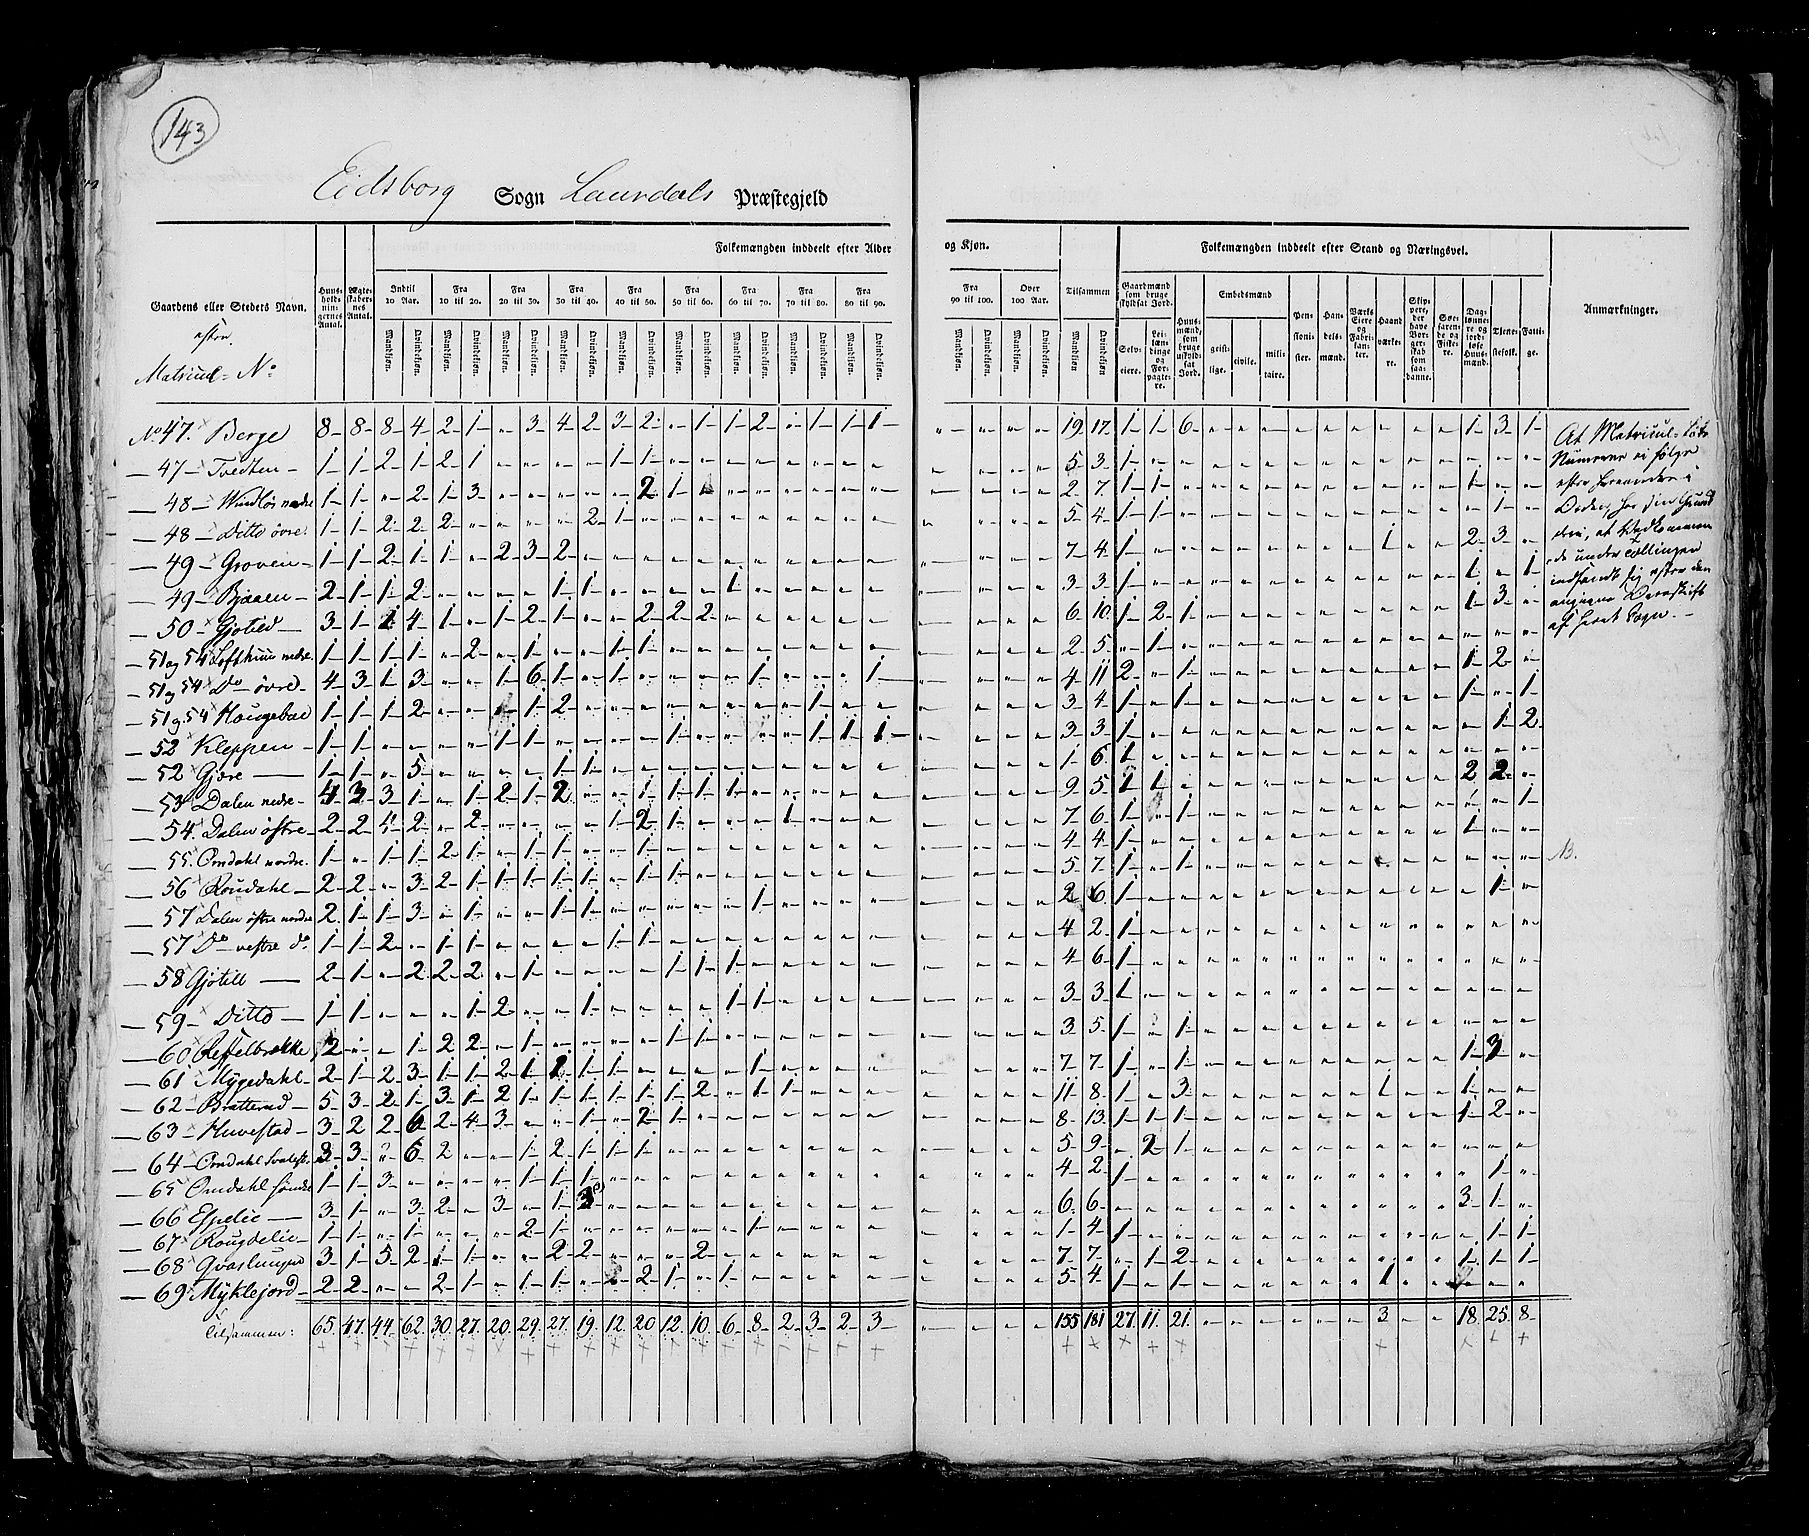 143
Eidsborg Sogn Laurdals Præstegjeld
Folkemængden inddeelt efter Alder og Kjøn.
Folkemængden inddeelt efter Stand og Næringsvei.
Gaardens eller Stedets Navn.
efter
Matricul-No
Huusholdningernes Antal.
Ægteskabernes Antal.
Indtil 10 Aar.
Fra 10 til 20.
Fra 20 til 30.
Fra 30 til 40.
Fra 40 til 50.
Fra 50 til 60.
Fra 60 til 70.
Fra 70 til 80.
Fra 80 til 90.
Fra 90 til 100.
Over 100 Aar.
Tilsammen
Mandkjøn. Qvindekjøn.
Gaardmænd som bruge skyldsat Jord.
Selveiere.
Leilændinge og Forpagtere.
Huusmænd, som bruge uskyldsat Jord.
Embedsmænd
geistlige.
civile.
militaire.
Pensionister.
Handelsmænd.
Værks Eiere og Fabrikanter.
Haandværkere.
Skippere, der have Borgerskab som saadanne.
Søefarende og Fiskere.
Daglønnere og jordløse Huusmænd.
Tjenestefolk.
Fattige.
Anmærkninger.
No 47. Berge 8 8 8 4 2 1 „ 3 4 2 3 2 „ 1 1 2 „ 1 1 1 19 17 1 1 6 1 3 1
47 Tvedten 1 1 2 1 2 1 1 1 5 3 1
48 Windløs nedre 1 1 „ 2 1 3 2 1 2 7 1 1 1
48 Ditto øvre 1 1 2 2 2 2 1 5 4 1 1 1
49 Groven 1 1 2 1 1 „ 2 3 2 7 4 1 1 2 3
49 Bjaaen 2 1 1 2 1 1 1 3 3 1 1 „ 1
50 Gjøtild 3 1 1 4 1 „ 1 2 1 „ „ 2 2 2 6 10 1 2 1 1 3
51 og 54 Lofthuus nedre 1 1 1 1 „ 2 „ 1 „ „ 1 1 2 5 „ 1
51 og 54 Do øvre 4 3 1 3 „ „ 1 6 1 „ 1 1 1 4 11 2 „ 1 1 2
51 og 54 Hougebae 1 1 1 2 1 2 1 3 4 1 „ 1 1 „ 1
52 Kleppen 1 1 1 1 1 1 1 1 3 3 1 1 2
52 Gjøre 1 1 „ 5 1 1 1 6 1
53 Dalen nedre 4 3 3 1 „ 1 2 1 2 „ „ 1 1 1 1 9 5 1 1 2 2
54 Dalen østre 2 2 4 2 „ 2 1 2 1 1 7 6 1 „ 1 1
55 Omdahl nordre 1 „ 1 1 2 1 „ 1 1 „ 1 4 4 1 1
56 Roudahl 2 2 „ 3 2 1 1 1 1 1 1 5 7 1 „ 1
57 Dalen østre nordre 2 1 1 3 „ 1 „ „ 1 1 1 2 6 1 1
57 Do vestre do 1 1 2 „ 1 1 1 1 4 2 1
58 Gjøtill 2 1 „ 2 2 2 „ 1 1 1 1 4 6 1
59 Ditto 1 1 1 2 1 1 1 3 3 1
60 2 „ „ 1 2 2 „ 1 1 1 3 5 1 „ 1
61 Mygedahl 2 1 2 3 1 1 2 1 1 1 1 1 7 7 1 „ 1 1 3
62 Bratterud 5 3 2 1 3 1 2 1 1 1 1 1 1 2 „ 1 1 11 8 1 „ 3 1 1
63 Huvestad 3 2 2 6 2 4 3 „ „ 1 „ 2 1 8 13 1 1 1 1 2
64 Omdahl 3 3 „ 6 2 „ „ 1 2 1 1 1 5 9 „ 2 1
65 Omdahl søndre 1 1 3 1 1 1 4 2 1 1
66 Espelie 3 1 „ 3 2 „ 3 „ 1 3 6 6 3 1
67 Rougdelie 1 1 „ 1 2 1 1 1 4 1 1 1
68 3 1 5 2 1 1 „ „ 2 2 2 7 7 „ 1 2 1 1 1
69 Myklejord 2 2 „ „ 2 1 „ 1 1 „ 2 1 „ 1 5 4 1 „ 1 1
Tilsammen: 65 47 44 62 30 27 20 29 27 19 12 20 12 10 6 8 2 3 2 3 155 181 27 11 21 3 18 25 8
At Matricul-
Numerne ei følge
efter hverandre i
Orden, har sin Grund
deri, at Vedkommende
under Tællingen
indfandt sig efter den
angivne
af hvert Sogn.
NB.